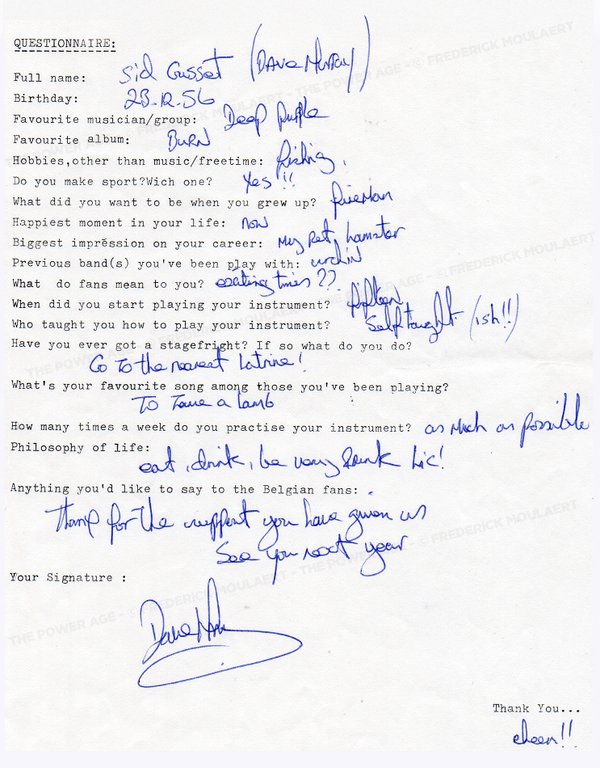 QUESTIONNAIRE:
Full name: Sid Gusset (Dave Murray)
Birthday: 23.12.56
Favourite musician/group: Deep Purple
Favourite album: Burn
Hobbies,other than music/freetime: fishing.
Do you make sport?Wich one? Yes!!
What did you want to be when you grew up? fireman
Happiest moment in your life: now
Biggest impression on your career: my Pet hamster
Previous band(s) you've been play with: urchin
What do fans mean to you? times??
When did you start playing your instrument? fifteen
Who taught you how to play your instrument? Self taught (ish!!)
Have you ever got a stagefright? If so what do you do?
Go To the nearest Latrine!
What's your favourite song among those you've been playing?
To Tame a Lamb
How many times a week do you practise your instrument? as much as possible
Philosophy of life:
eat, drink, be very drunk hic!
Anything you'd like to say to the Belgian fans:
for the support you have given us
See you next year
Your Signature :
Dave
Thank You...
cheers!!
THE POWER AGE - © FREDERICK MOULAERT